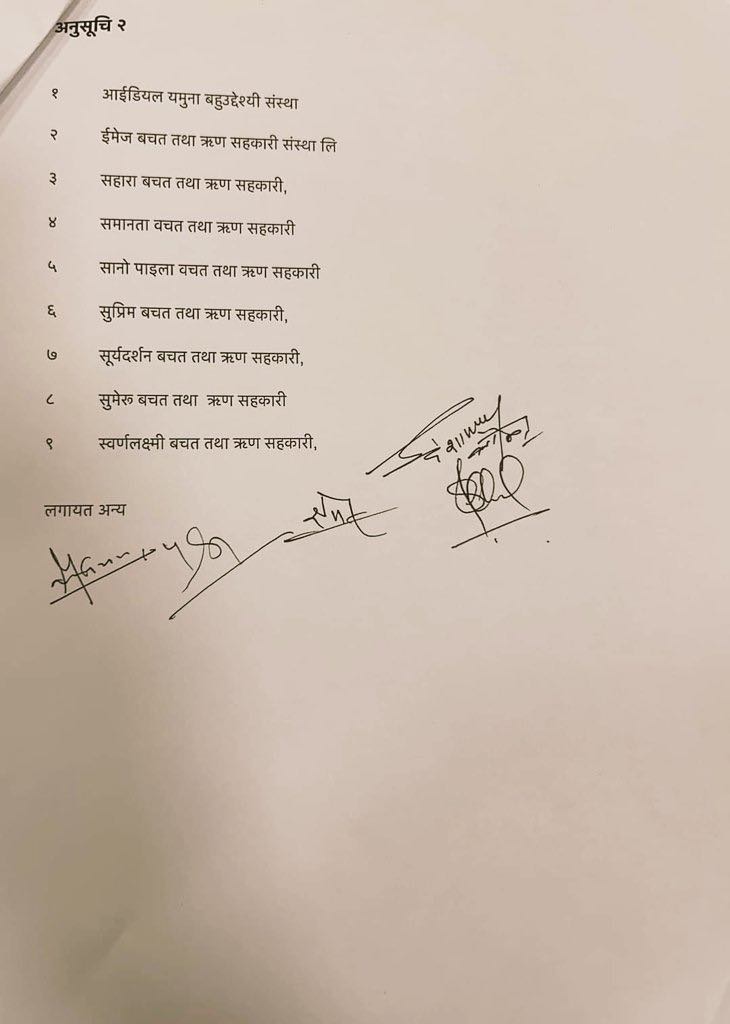 अनुसूचि २
१ आईडियल यमुना बहुउद्देश्यी संस्था
२ ईमेज बचत तथा ऋण सहकारी संस्था लि
३ सहारा बचत तथा ऋण सहकारी,
४ समानता वचत तथा ऋण सहकारी
५ सानो पाइला वचत तथा ऋण सहकारी
६ सुप्रिम बचत तथा ऋण सहकारी,
७ सूर्यदर्शन बचत तथा ऋण सहकारी,
८ सुमेरू बचत तथा ऋण सहकारी
९ स्वर्णलक्ष्मी बचत तथा ऋण सहकारी,
लगायत अन्य